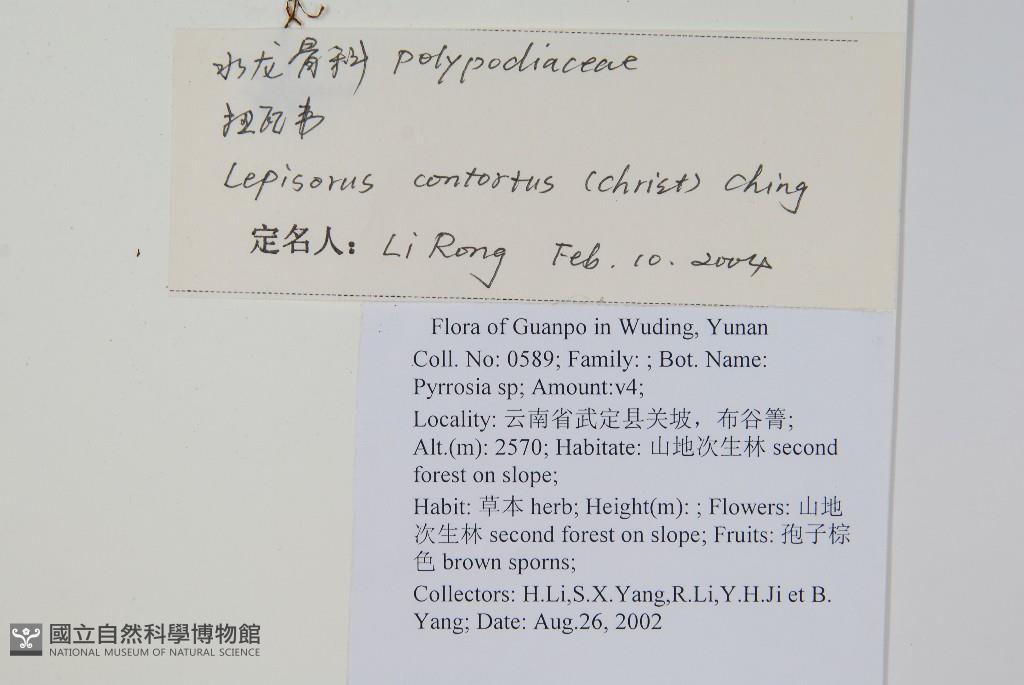 水龙骨科 polypodiaceae
扭瓦韦
Lepisorus contortus (Christ) Ching
定名人: Li Rong Feb. 10. 2004
Flora of Guanpo in Wuding, Yunan
Coll. No: 0589; Family: ; Bot. Name:
Pyrrosia sp; Amount:v4;
Locality: 云南省武定县关坡，布谷箐;
Alt.(m): 2570; Habitate: 山地次生林 second
forest on slope;
Habit: 草本 herb; Height(m): ; Flowers: 山地
次生林 second forest on slope; Fruits: 孢子棕
色 brown sporns;
Collectors: H.Li,S.X.Yang,R.Li,Y.H.Ji et B.
Yang; Date: Aug.26, 2002
國立自然科學博物館
NATIONAL MUSEUM OF NATURAL SCIENCE